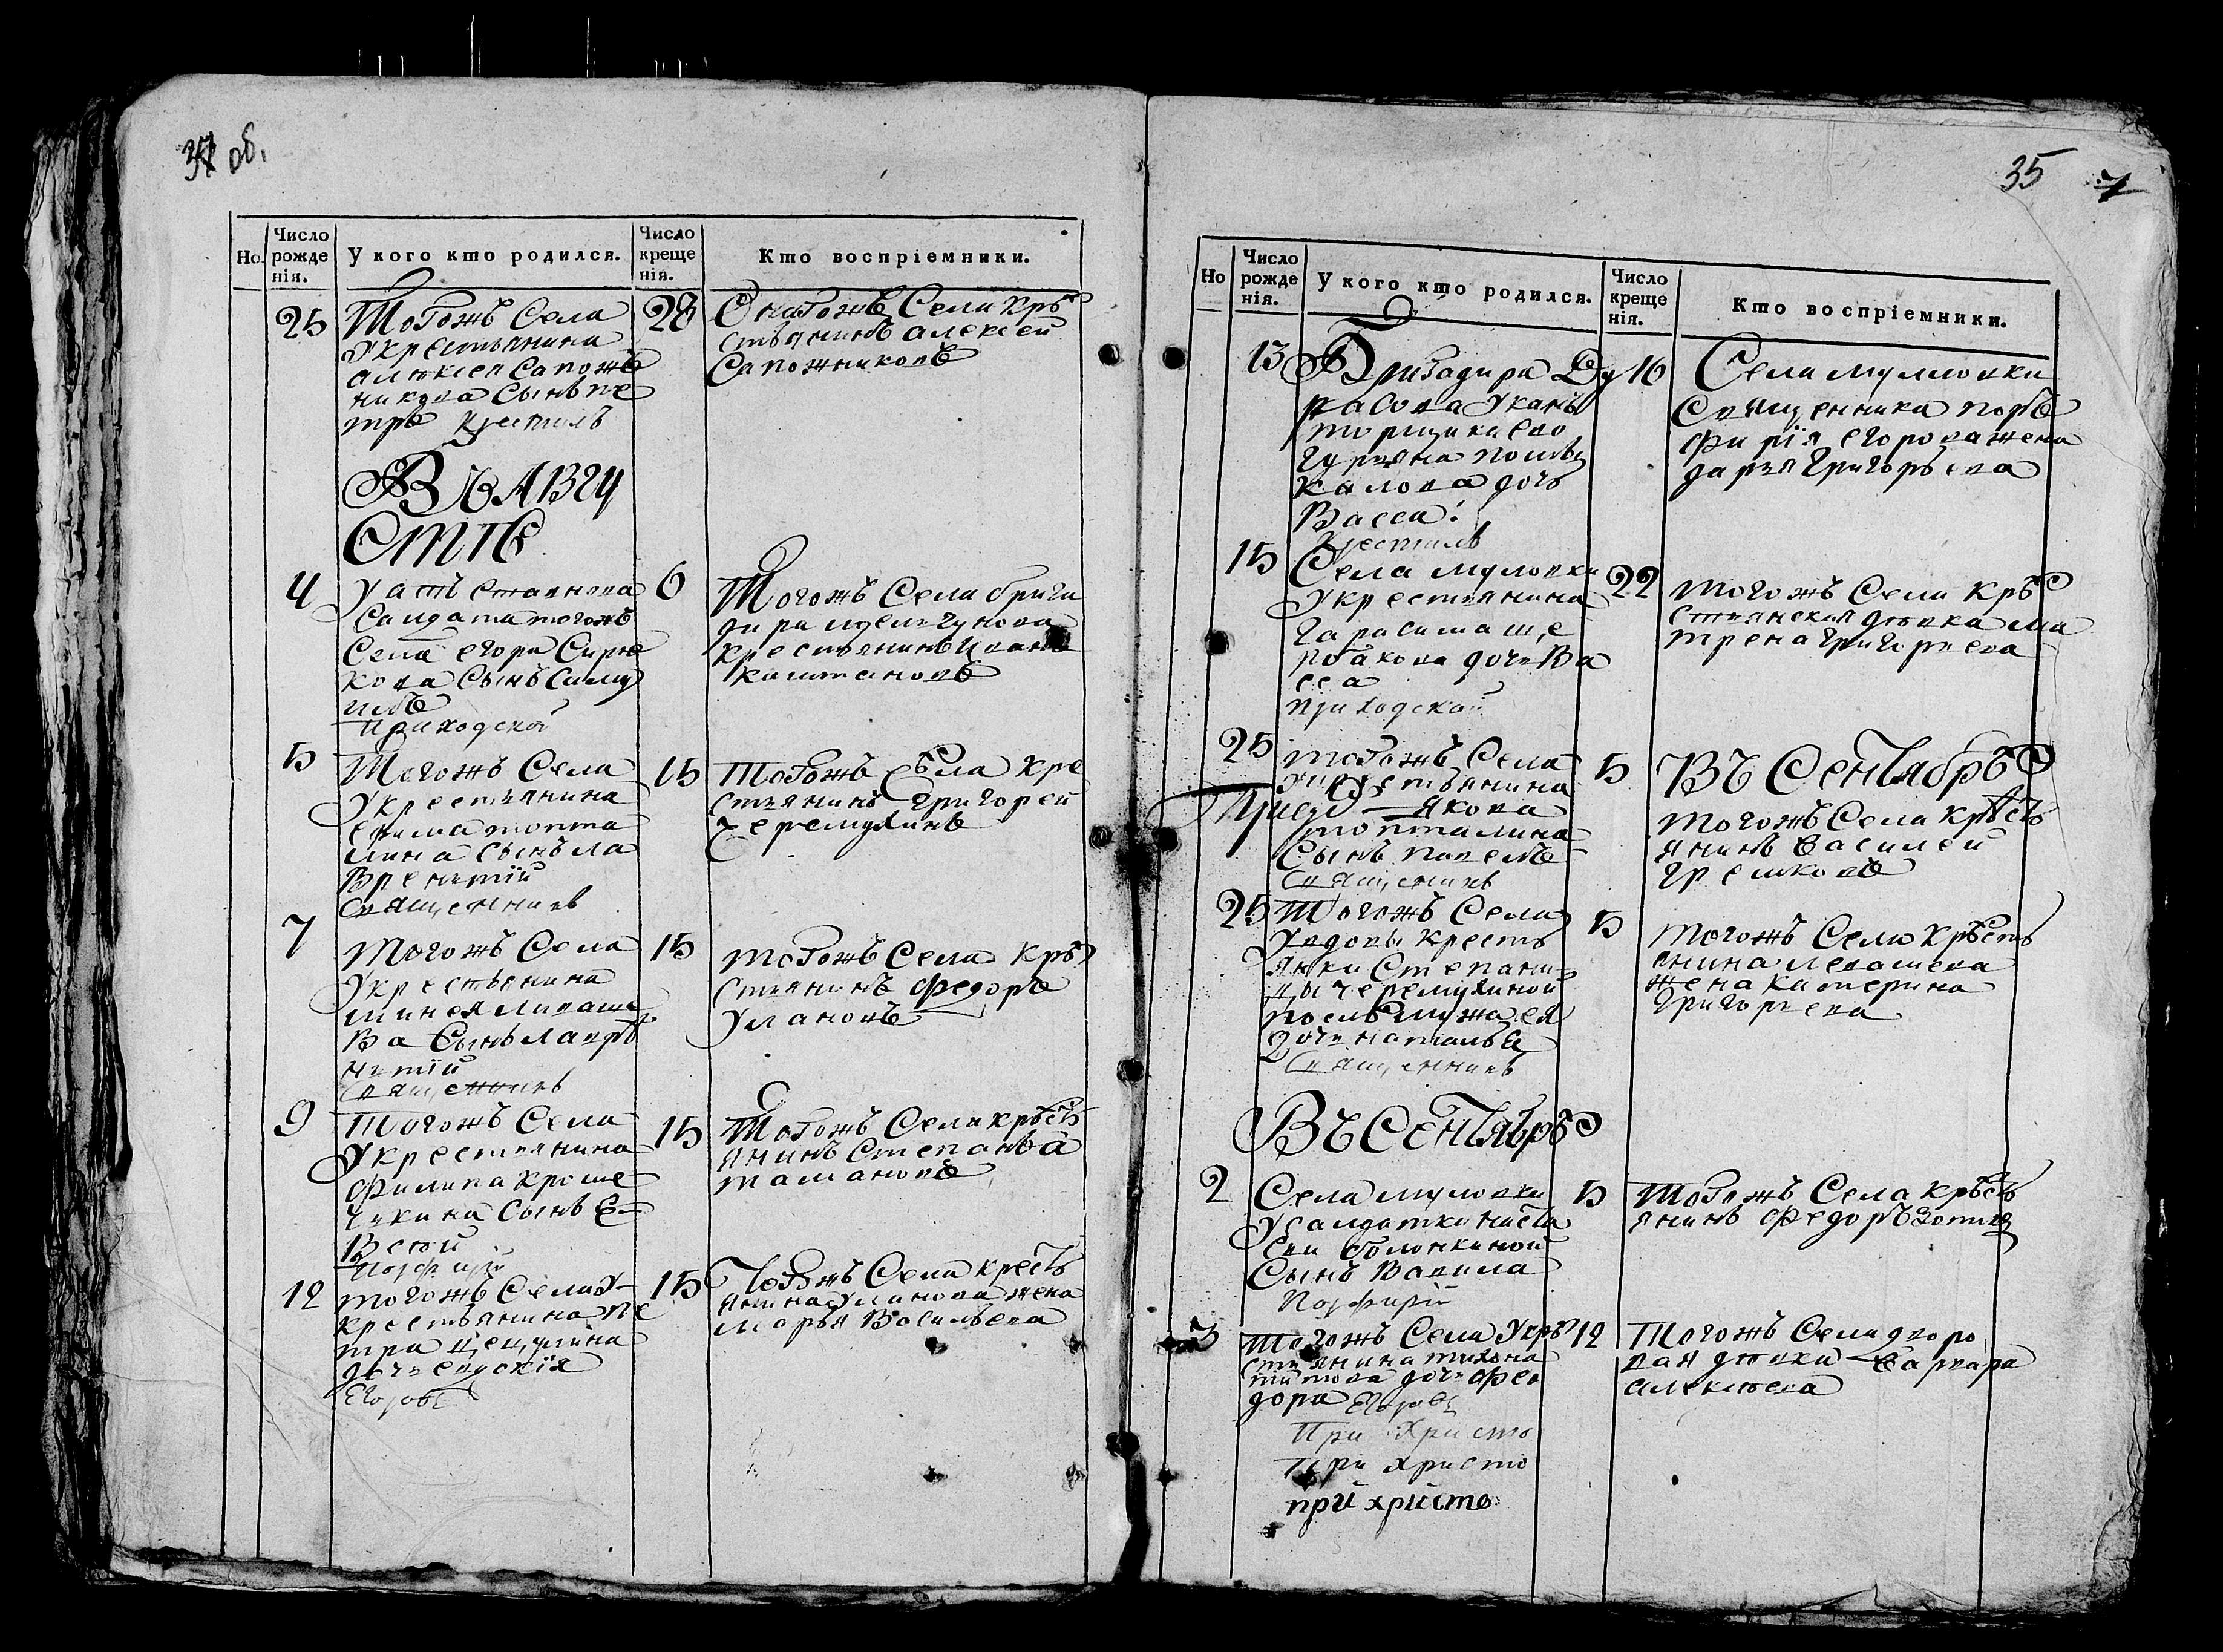 об.
Но.
Число рожде нія.
У кого кто родился.
Число креще нія.
Кто воспріемники.
25
Тогожъ Села
Укрестьянина
алѣксея Сапожъ
никова Сынъ пе
тръ крестилъ
28
Онагожъ Села Кре
стьянинъ алексей
Сапожниковъ
Въ Авгу
стѣ
4
Салдата тогожъ
Села егора
кова Сынъ
Приходской
6
Тогожъ Села брига
дира
крестьянинъ Иванъ
каштановъ
5
Тогожъ Села
Укрестьянина
ефима топта
лина сынъ ла
врентій
Священникъ
15
Тогожъ Села кре
стьянинъ Григорей
Черемухинъ
7
Тогожъ Села
Укрестьянина
Ва Сынъ лавре
нтій
Священникъ
15
тогожъ Села кре
стьянинъ Федоръ
Улановъ
9
Тогожъ Села
Укрестьянина
Филипа кроше
чкина Сынъ Е
Всей
15
Тогожъ Села кресть
янинъ Степанъ а
тамановъ
12
тогожъ Села У
крестьянина пе
тра
дочь евдокія
Егоровъ
15
Тогожъ Села кресть
янина Уланова жена
марья Васильева
35
Но
Число рожде нія.
У кого кто родился.
Число креще нія.
Кто воспріемники.
13
Бригадира Ду
расова Укан
торщика ево
гурьяна
калова дочь
Васса
Крестилъ
16
Села муловки
Священника порѳ
фирія егорова жена
дарья Григорьева
15
Села муловки
Укрестьянина
Гарасима
дочь Ва
сса
приходской
22
тогожъ Села Кре
стьянская дѣвка ма
трена григорьева
25
тогожъ Села
Укрестьянина
Якова
топталина
Сынъ павелъ
Священникъ
5
Въ Сентябрѣ
тогожъ Села Кресть
янинъ Василей
грешновъ
25
Тогожъ Села
Увдовы кресть
янки Степани
ды черемухиной
послѣ мужа ея
дочь наталья
Священникъ
5
тогожъ Села Кресть
янина левашева
жена катерина
Григорьева
Въ Сентябрѣ
2
Села муловки
Усалдатки наста
сьи болонкиной
Сынъ Вавила
Порфирій
5
Тогожъ Села кресть
янинъ Федоръ
3
тогожъ Села Укре
стьянина тихона
титова дочь Фео
дора Егоровъ
12
Тогожъ Села дворо
вая дѣвка варвара
алексѣева
При христо
При христо
при христо